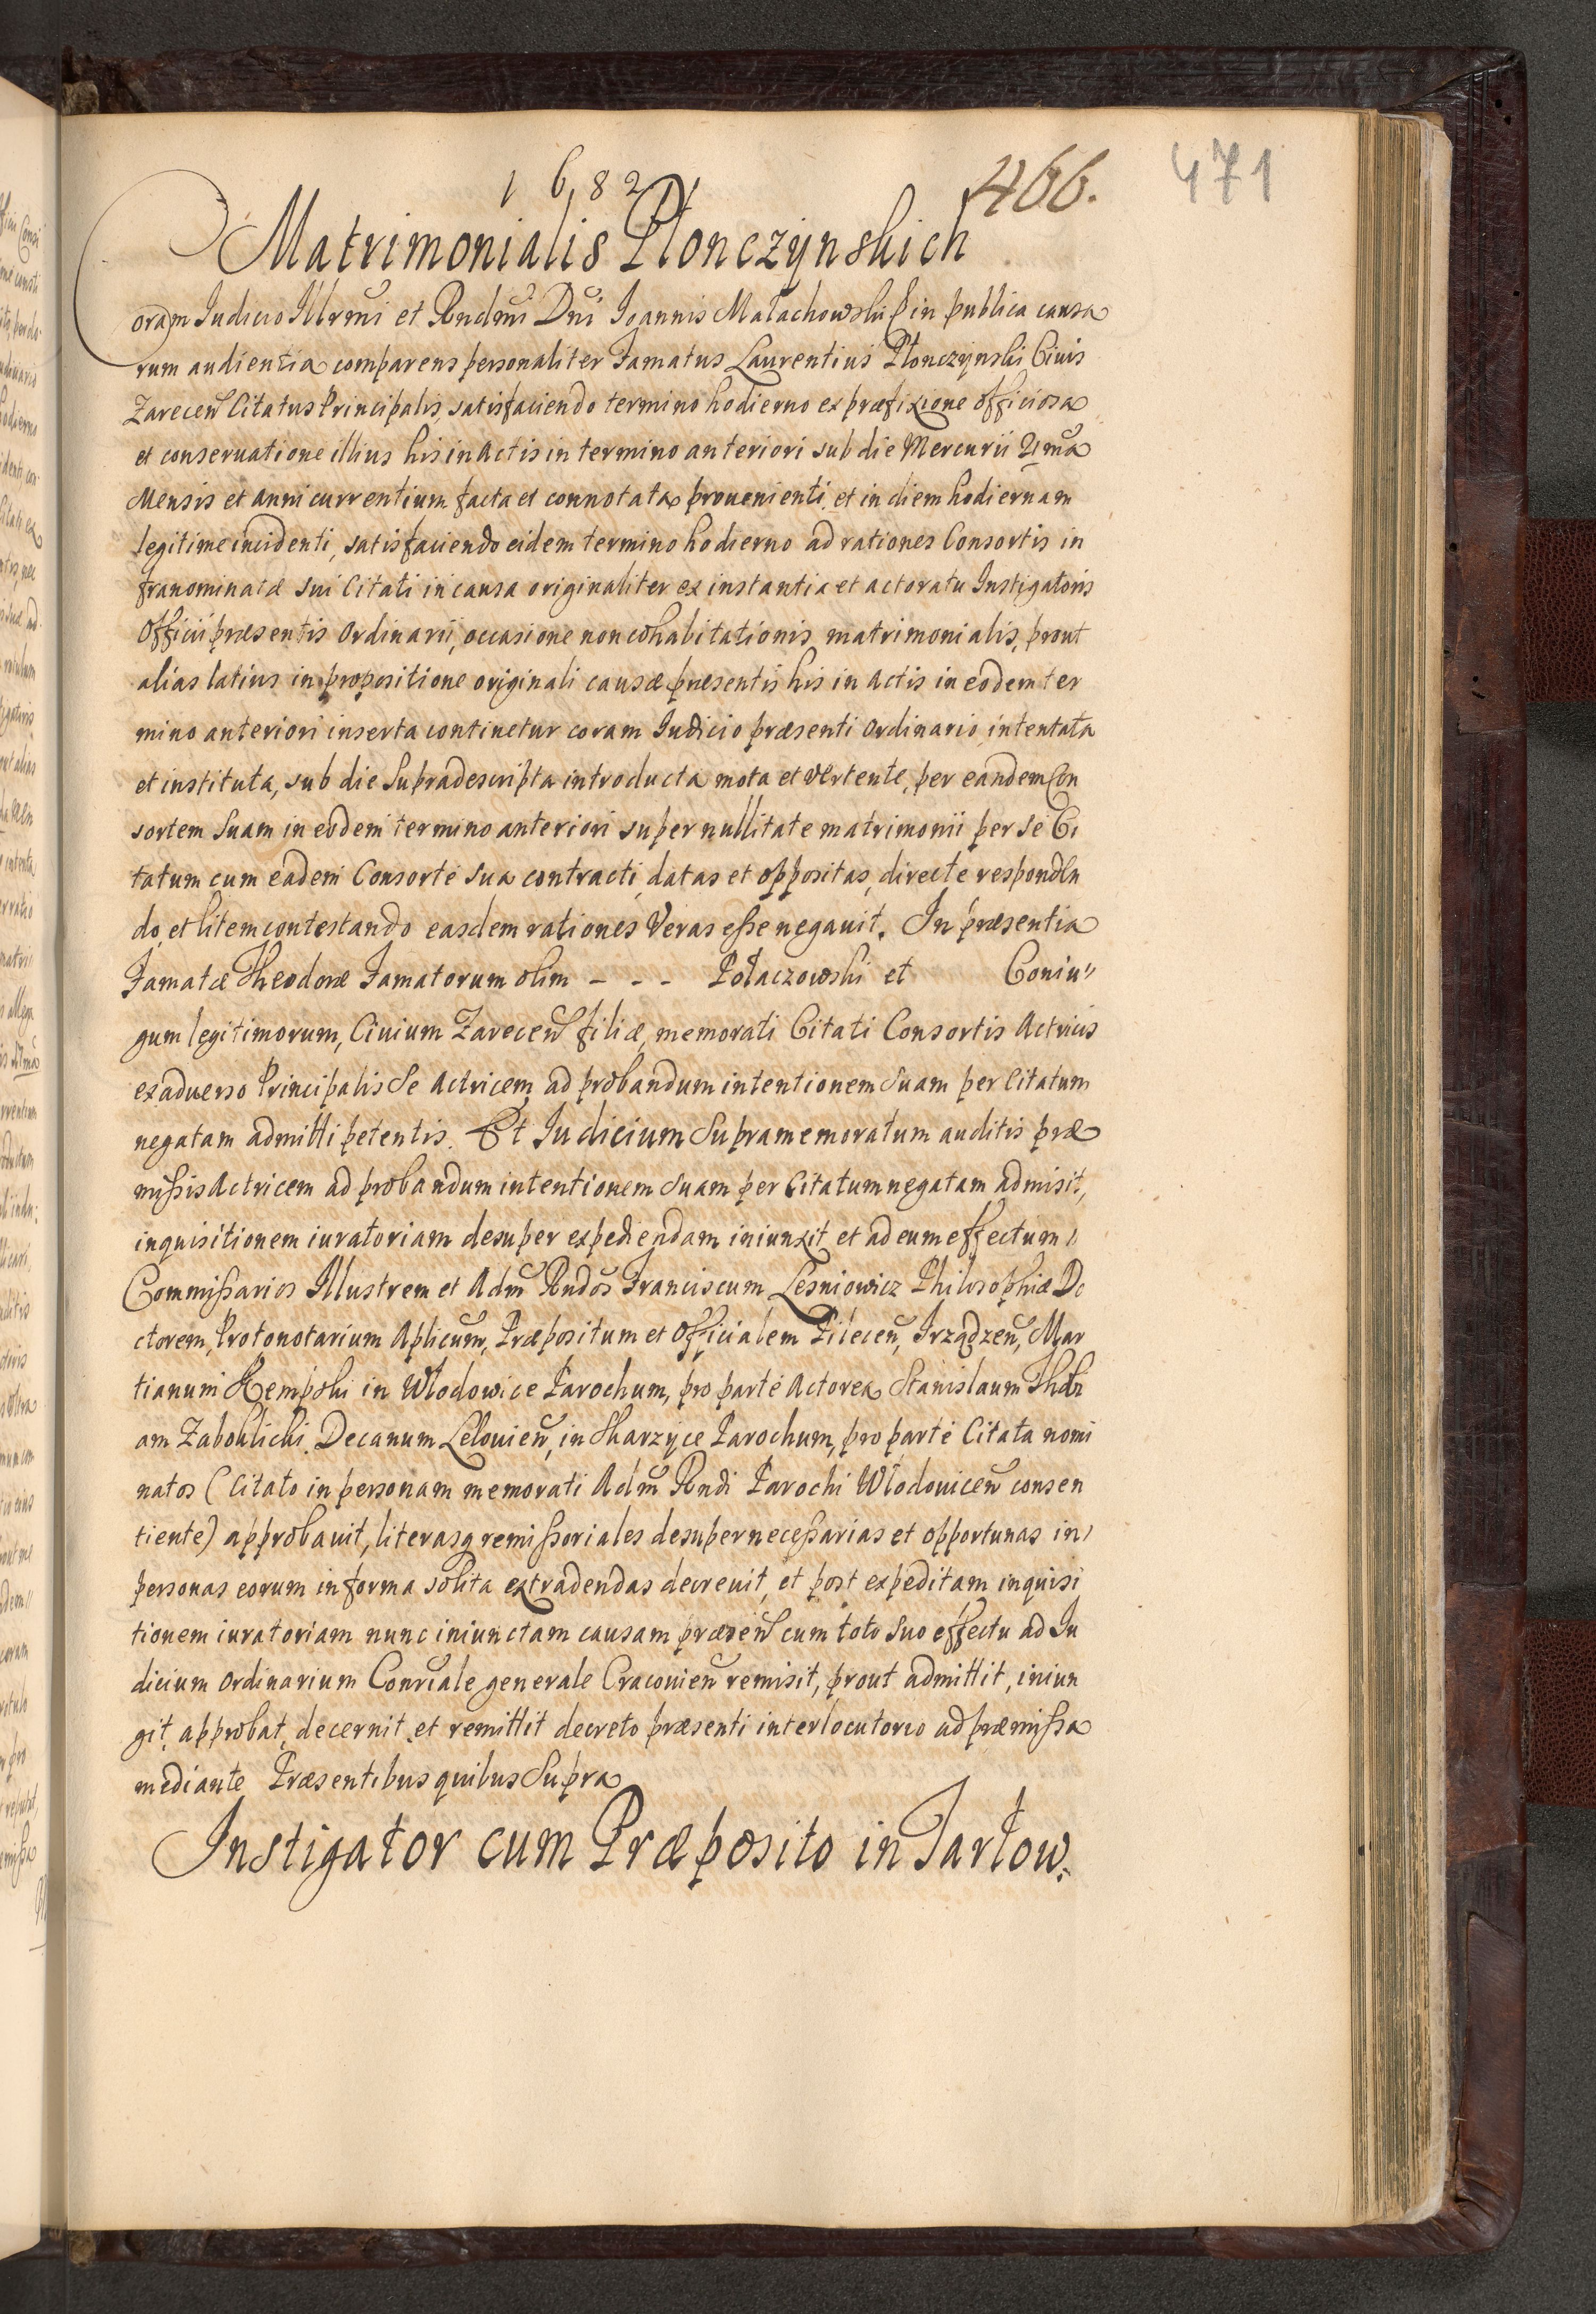 1682
466.
471
Matrimonialis Płonczynskich
Coram Iudicio Illrmi et Rndmi Dni Ioannis Małachowski P in publica causa
rum audientia comparens personaliter Famatus Laurentius Płonczynski Civis
Zarecen Citatus Principalis, satisfaciendo termino hodierno ex præfixione officiosa
et conservatione illius his in Actis in termino anteriori sub die Mercurii
Mensis et anni currentium facta et connotata provenienti, et in diem hodiernam
legitime incidenti, satisfaciendo eidem termino hodierno ad rationes Consortis in
franominatæ sui Citati in causa originaliter ex instantia et actoratu Instigatoris
Officii præsentis Ordinarii, occasione non cohabitationis matrimonialis, prout
alias latius in propositione originali causæ præsentis his in Actis in eodem ter
mino anteriori inserta continetur coram Iudicio præsenti Ordinario intentata
et instituta, sub die Supradescripta introducta mota et vertente, per eandem Con
sortem Suam in eodem termino anteriori super nullitate matrimonii per se Ci
tatum cum eadem Consorte sua contracti, datas et oppositas, directe responden
do, et litem contestando easdem rationes Veras esse negavit. In præsentia
Famatæ Theodoræ Famatorum olim - - - Połaczowski et Coniu"
gum legitimorum, Civium Zarecen filiæ, memorati Citati Consortis Actricis
ex adverso Principalis Se Actricem ad probandum intentionem Suam per Citatum
negatam admitti petentis. Et Iudicium Supramemoratum auditis præ
missis Actricem ad probandum intentionem Suam per Citatum negatam admisit,
inquisitionem iuratoriam desuper expediendam iniunxit et ad eum effectum
Commissarios Illustrem et Adm Rndos Franciscum Lesniowicz Philosophiæ Do
ctorem, Protonotarium Aplicum, Præpositum et Officialem Pilecen, Irządzen, Mar
tianum Kempski in Włodowice Parochum, pro parte Actorea Stanislaum Thobi
am Zabohlicki Decanum Lelovien, in Skarzyce Parochum, pro parte Citata nomi
natos (Citato in personam memorati Adm Rndi Parochi Włodovicen consen
tiente) approbavit, literasq remissoriales desuper necessarias et opportunas in
personas eorum in forma solita extradendas decrevit, et post expeditam inquisi
tionem iuratoriam nunc iniunctam causam præsen cum toto Suo effectu ad Iu
dicium Ordinarium Conrsale generale Cracovien remisit, prout admittit, iniun
git, approbat, decernit et remittit decreto præsenti interlocutorio ad præmissa
mediante Præsentibus quibus Supra
Instigator cum Præposito in Tarłow.